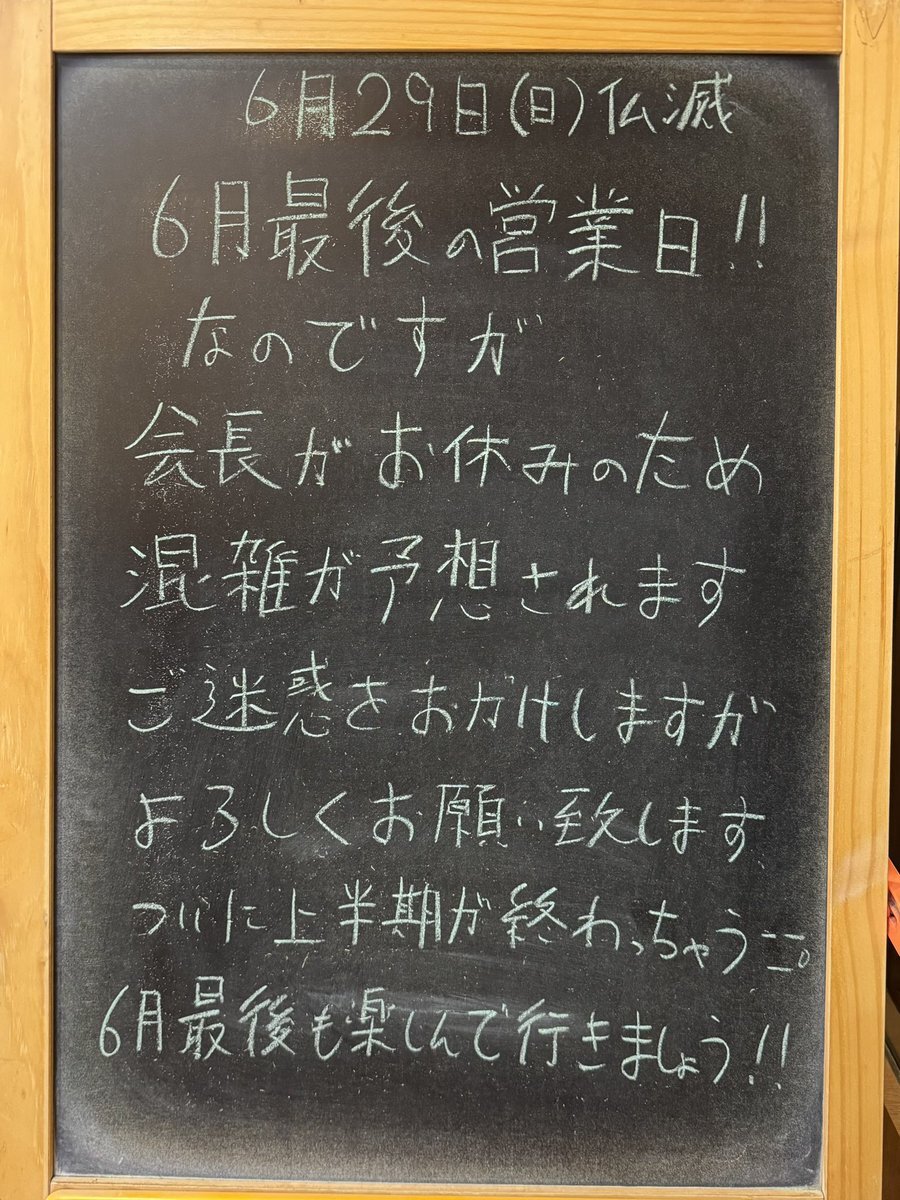 6月29日(日)仏滅
6月最後の営業日!!
なのですが
会長がお休みのため
混雑が予想されます
ご迷惑をおかけしますが
よろしくお願い致します
ついに上半期が終わっちゃう
6月最後も楽しんで行きましょう!!